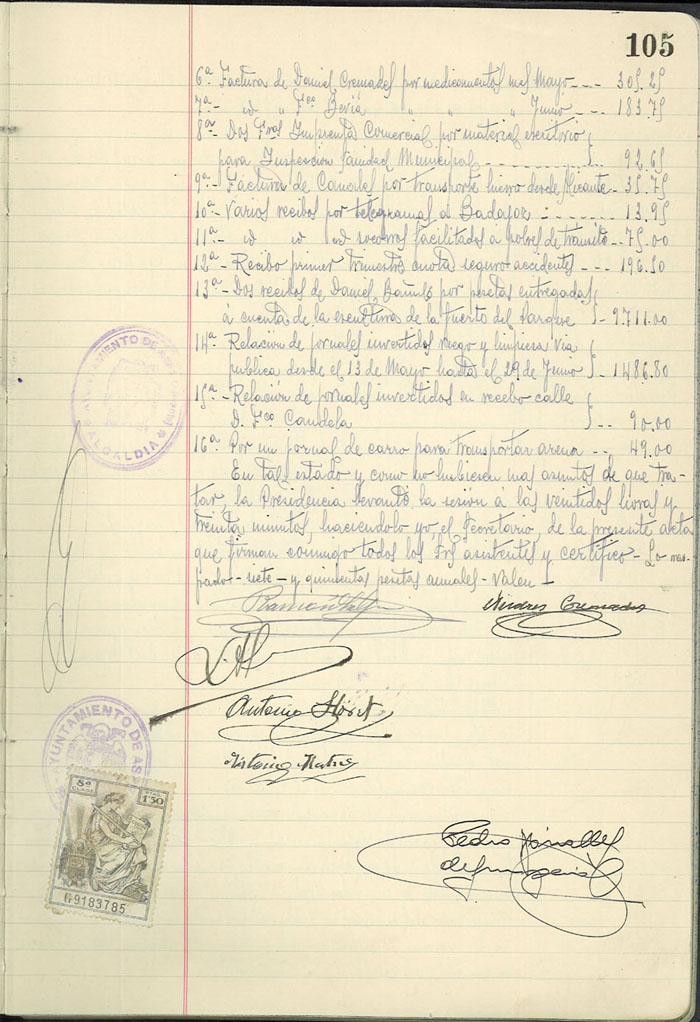 105
6ª Factura de Daniel Cremades por medicamentos mes Mayo --- 305.25
7ª - id " Fco Beviá " " " Junio -- 183.75
8ª - Dos Fras Imprenta Comercial por material escritorio
para Inspección Sanidad Municipal - - - - - 92.65
9ª - Factura de Canales por transporte hierro desde Alicante - 35.75
10ª - Varios recibos por telegramas a Badajoz - - - 13.95
11ª - id id id socorros facilitados a pobres de tránsito - 75.00
12ª - Recibo primer trimestre cuota seguro accidentes --- 196.50
13ª - Dos recibos de Daniel por pesetas entregadas
á cuenta de la escritura de la puerto del Parque - 9711.00
14ª - Relación de jornales invertidos riego y limpieza via
publica desde el 13 de Mayo hasta el 29 de Junio - 1486.80
15ª - Relación de jornales invertidos en recibo calle
D. Fco Candela -- 90.00
16ª - Por un jornal de carro para transportar arena -- 49.00
En tal estado y como no hubiesen mas asuntos de que tra-
tar, la Presidencia levantó la sesion a las veintidos horas y
treinta minutos, haciendolo yo, el Secretario, de la presente acta
que firman conmigo todos los Srs asistentes y certifico - Lo ras-
pado - siete - y quinientas pesetas anuales - Valen -
Andres Cremades
Antonio
Antonio
Pedro
AYUNTAMIENTO DE ASP
ALCALDIA
AYUNTAMIENTO DE AS
8ª CLASE
PTAS. 1'50
9183785